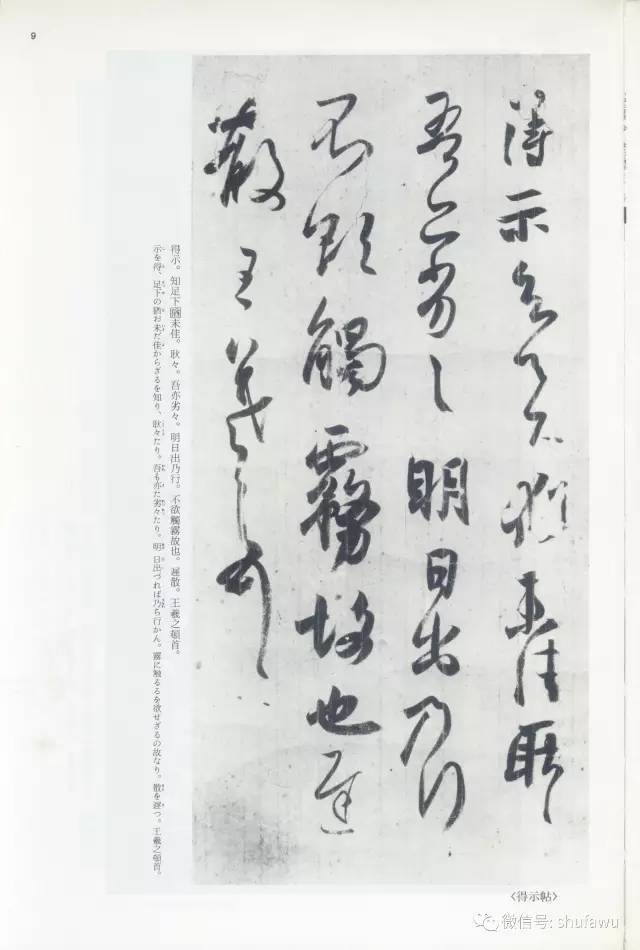 9
得示知足下猶未佳耿
吾亦劣々明日出乃行
不欲觸霧故也遲
散王羲之頓首
得示。知足下猶未佳。耿々。吾亦劣々。明日出乃行。不欲觸霧故也。遲散。王羲之頓首。
示を得、足下の猶お未だ佳からざるを知り、耿々たり。吾も亦た劣々たり。明日出づれば乃ち行かん。霧に触るるを欲せざるの故なり。散を遲つ。王羲之頓首。
〈得示帖〉
微信号: shufawu